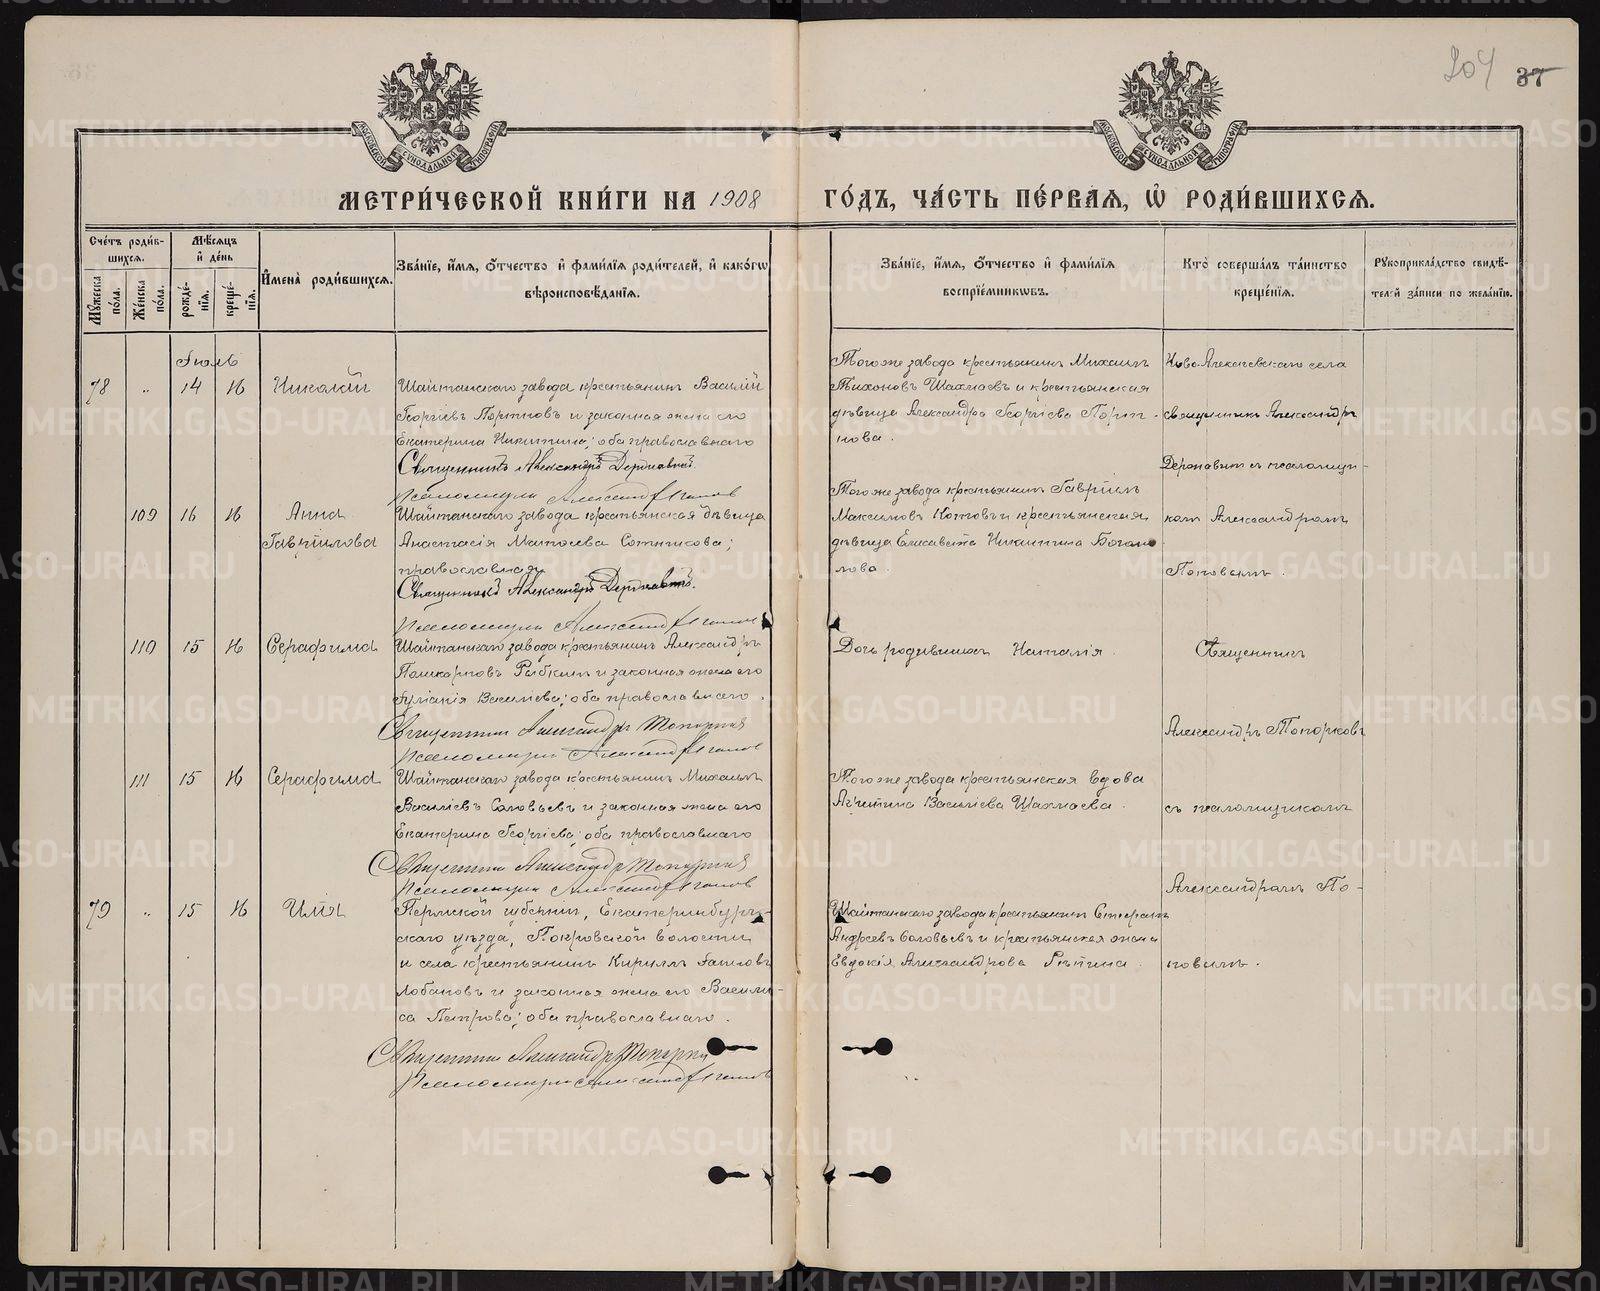 204 37
МОСКОВСКОЙ СѴНОДАЛЬНОЙ ТИПОГРАФІИ
МОСКОВСКОЙ СѴНОДАЛЬНОЙ ТИПОГРАФІИ
МЕТРИ́ЧЕСКОЙ КНИ́ГИ НА 1908 ГО́ДЪ, ЧА́СТЬ ПЕ́РВАѦ, Ѡ҆ РОДИ́ВШИХСѦ.
Сче́тъ роди́в-
шихсѧ.
Мꙋ́жеска по́ла.
Же́нска по́ла.
Мѣ́сѧцъ
и҆ де́нь
рожде́-
нїѧ.
креще́-
нїѧ.
И҆мена̀ роди́вшихсѧ.
Зва́нїе, и҆́мѧ, ѻ҆́тчество и҆ фами́лїѧ роди́телей, и҆ како́гѡ
вѣроисповѣ́данїѧ.
Зва́нїе, и҆́мѧ, ѻ҆́тчество и҆ фами́лїѧ
воспрїе́мникѡвъ.
Кто̀ соверша́лъ та́инство
креще́нїѧ.
Рꙋкоприкла́дство свидѣ́-
телей за́писи по жела́нїю.
Іюль
78 „ 14 16 Николай
Шайтанскаго завода крестьянинъ Василій
Георгіевъ Портновъ и законная жена его
Екатерина Никитина; оба православнаго
Священникъ Александръ Державинъ.
Псаломщикъ Александръ Поповъ
Того же завода крестьянинъ Михаилъ
Тихоновъ Шахмаевъ и крестьянская
дѣвица Александра Георгіева Порт-
нова.
Ново-Алексеевскаго села
священникъ Александръ
Державинъ съ псаломщи-
комъ Александромъ
Поповымъ.
109 16 16 Анна
Гавріилова
Шайтанскаго завода крестьянская дѣвица
Анастасія Матѳіева Сотникова;
православная
Священникъ Александръ Державинъ.
Псаломщикъ Александръ Поповъ
Того же завода крестьянинъ Гавріилъ
Максимовъ Котовъ и крестьянская
дѣвица Елисавета Никитина Богомо-
лова.
110 15 16 Серафима
Шайтанскаго завода крестьянинъ Александръ
Рыбкинъ и законная жена его
Іуліанія Васильева; оба православнаго.
Священникъ Александръ Топорковъ
Псаломщикъ Александръ Поповъ
Дочь родившихъ Наталія.
Священникъ
Александръ Топорковъ
съ псаломщикомъ
Александромъ По-
повымъ.
111 15 16 Серафима
Шайтанскаго завода крестьянинъ Михаилъ
Васильевъ Соловьевъ и законная жена его
Екатерина Георгіева; оба православнаго
Священникъ Александръ Топорковъ
Псаломщикъ Александръ Поповъ
Того же завода крестьянская вдова
Васильева Шахмаева.
79 „ 15 16 Илія
Пермской губерніи, Екатеринбург-
скаго уѣзда, Покровской волости
и села крестьянинъ Кириллъ
Лобановъ и законная жена его Васили-
са Петрова; оба православнаго.
Священникъ Александръ Топорковъ
Псаломщикъ Александръ Поповъ
Шайтанскаго завода крестьянинъ Стефанъ
Андреевъ Соловьевъ и крестьянская жена
Евдокія Александрова Рѣпина.
METRIKI.GASO-URAL.RU